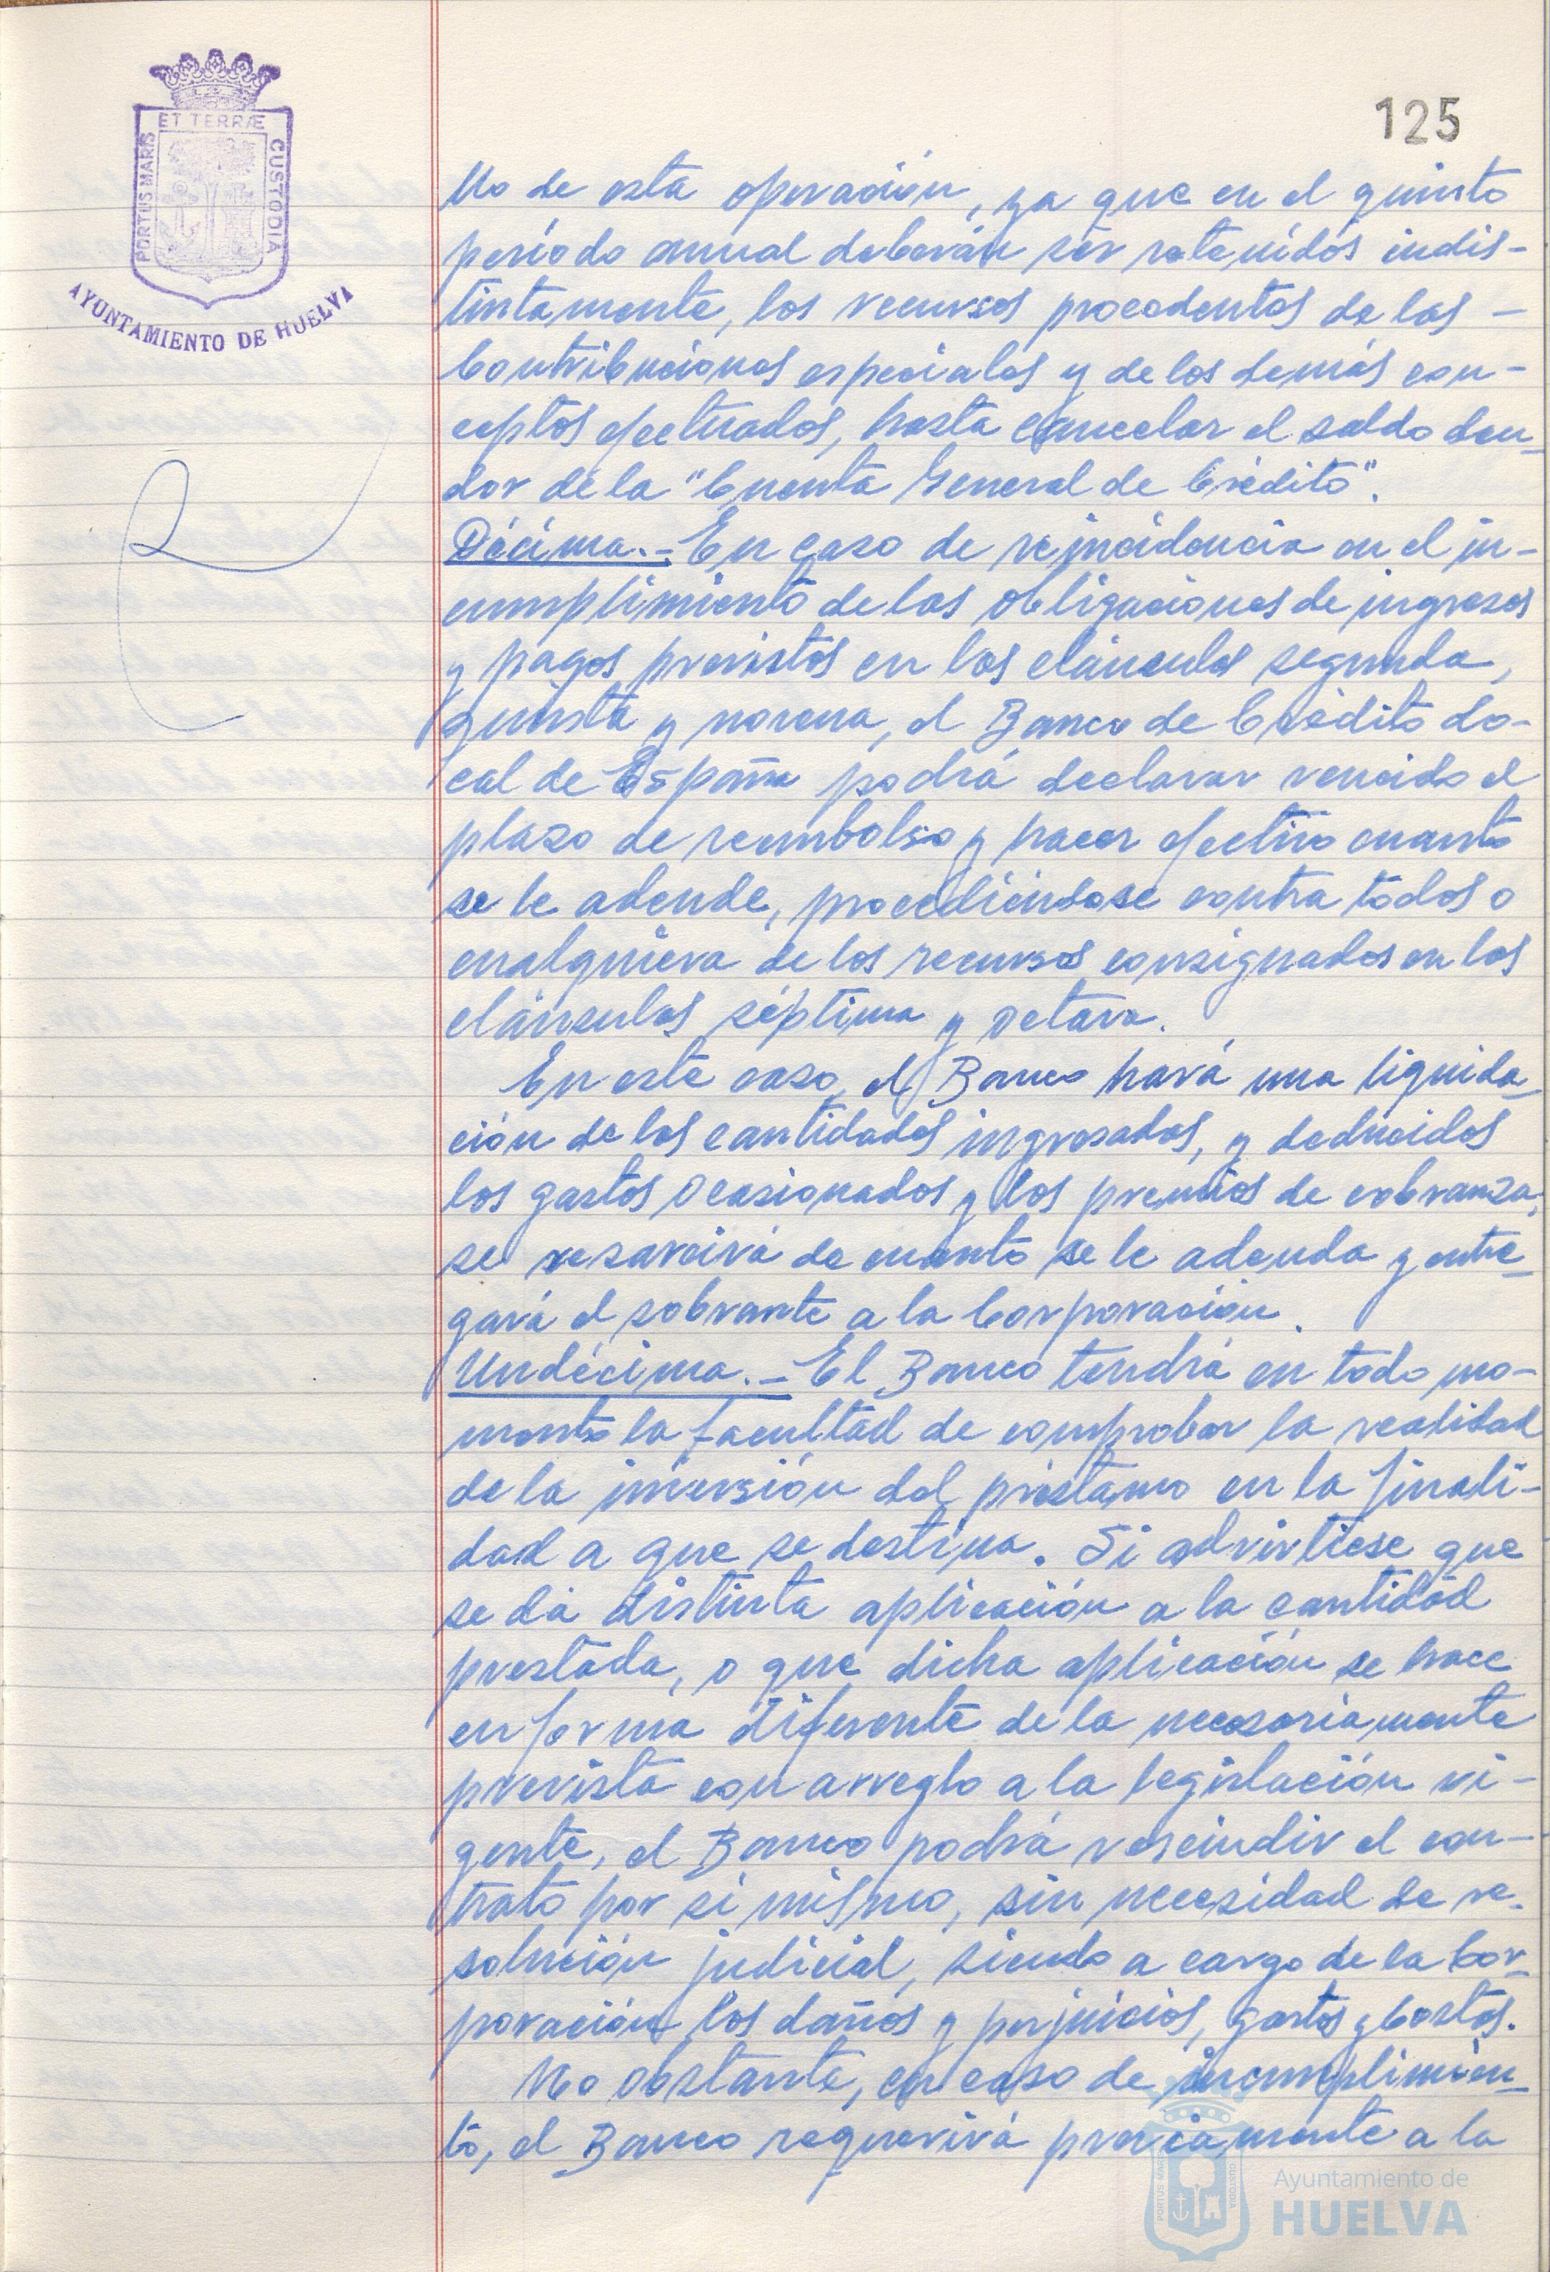 ET TERRÆ
PORTUS MARIS
CUSTODIA
AYUNTAMIENTO DE HUELVA
125
llo de esta operación, ya que en el quinto
período anual deberán ser retenidos indis-
tintamente, los recursos procedentes de las -
Contribuciones especiales y de los demás con-
ceptos afectuados, hasta cancelar el saldo deu-
dor de la "Cuenta General de Crédito".
Décima.- En caso de reincidencia en el in-
cumplimiento de las obligaciones de ingresos
y pagos previstos en las cláusulas segunda,
quinta y novena, el Banco de Crédito Lo-
cal de España podrá declarar vencido el
plazo de reembolso y hacer efectivo cuanto
se le adeude, procediéndose contra todos o
cualquiera de los recursos consignados en las
cláusulas séptima y octava.
En este caso, el Banco hará una liquida-
ción de las cantidades ingresadas, y deducidos
los gastos ocasionados y los premios de cobranza,
se resarcirá de cuanto se le adeuda y entre-
gará el sobrante a la Corporación.
Undécima.- El Banco tendrá en todo mo-
mento la facultad de comprobar la realidad
de la inversión del préstamo en la finali-
dad a que se destina. Si advirtiese que
se dá distinta aplicación a la cantidad
prestada, o que dicha aplicación se hace
en forma diferente de la necesariamente
prevista con arreglo a la legislación vi-
gente, el Banco podrá rescindir el con-
trato por sí mismo, sin necesidad de re-
solución judicial, siendo a cargo de la Cor-
poración los daños y perjuicios, gastos y costos.
No obstante, en caso de incumplimien-
to, el Banco requerirá previamente a la
Ayuntamiento de
HUELVA